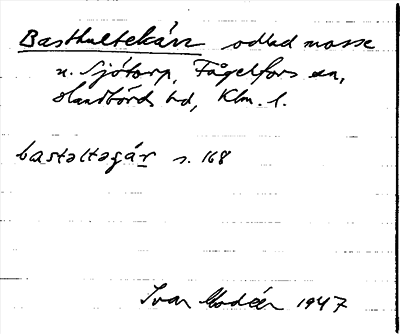 Basthultekärr odlad mosse
u. Sjötorp, Fågelfors sn,
Handbörds hd, Klm. l.
bastəltəgár s. 168
Ivar Modéer 1947